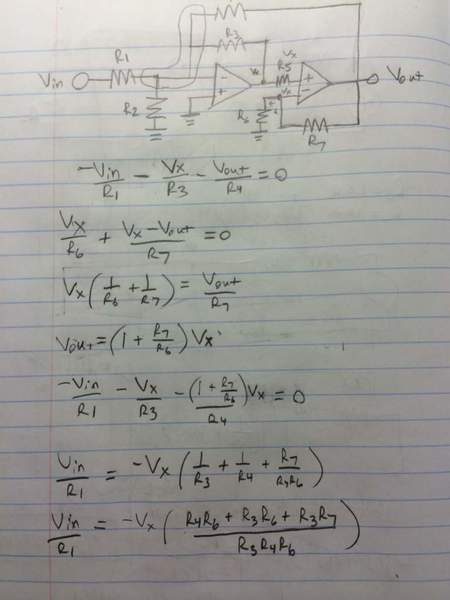 R3
R1 Vx Vx
Vin R5 Vout
R2 Vx
R6
R7
-Vin/R1 - Vx/R3 - Vout/R4 = 0
Vx/R6 + Vx-Vout/R7 = 0
Vx(1/R6 + 1/R7) = Vout/R7
Vout = (1 + R7/R6) Vx
-Vin/R1 - Vx/R3 - (1 + R7/R6)Vx/R4 = 0
Vin/R1 = -Vx(1/R3 + 1/R4 + R7/R4R6)
Vin/R1 = -Vx(R4R6 + R3R6 + R3R7/R3R4R6)